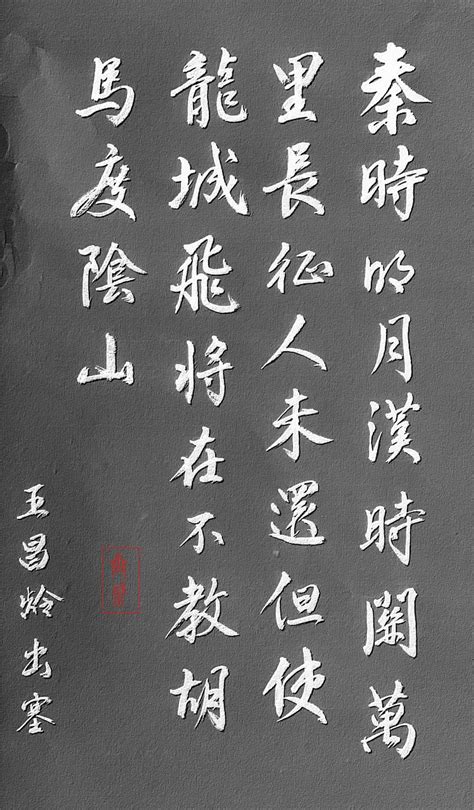 秦時明月漢時関萬
里長征人未還但使
龍城飛将在不教胡
馬度陰山
王昌龄出塞